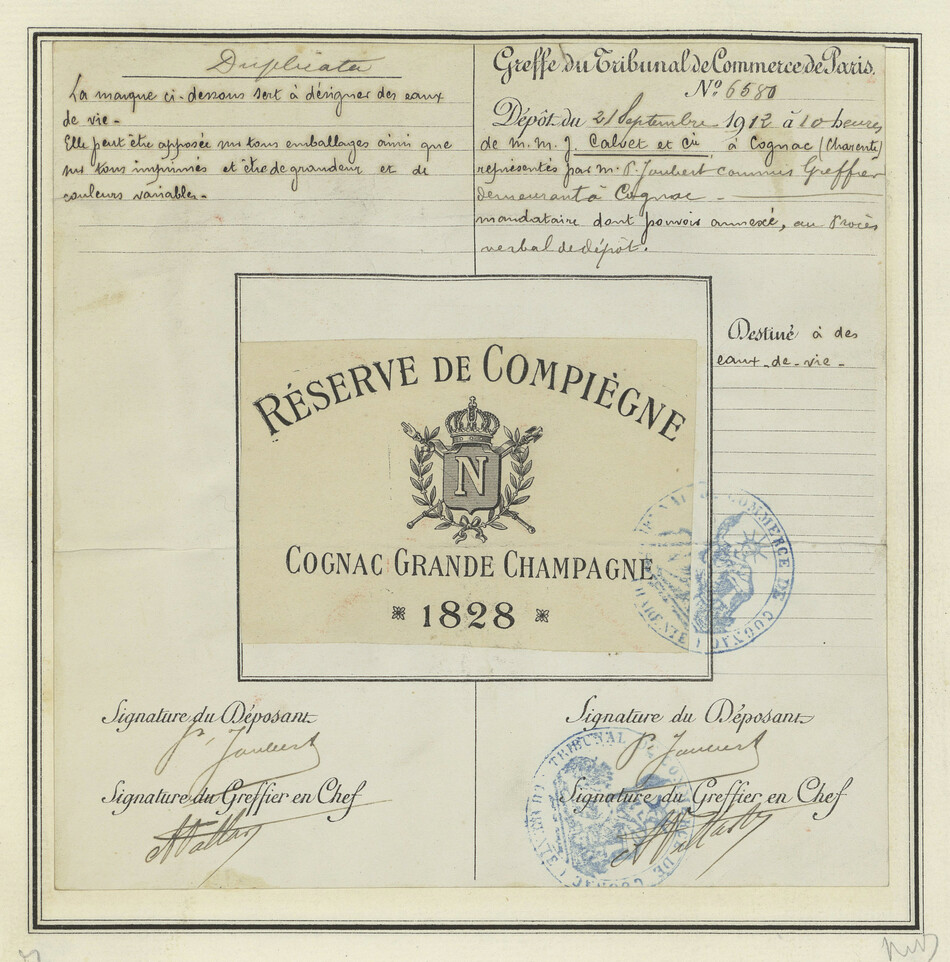 Duplicata
La marque ci-dessous sert à désigner des eaux
de vie-
Elle peut être apposée sur tous emballages ainsi que
sur tous imprimés et être de grandeur et de
couleurs variables-
Greffe du Tribunal de Commerce de Paris.
N° 6580
Dépôt du 21 Septembre 1912 à 10 heures
de m.m. J. Calvet et Cie à Cognac (Charente)
représentés par m. P. Jaubert commis Greffier
demeurant à Cognac -
mandataire dont pouvoir annexé, au Procès
verbal de dépôt.
Destiné à des
eaux-de-vie-
RÉSERVE DE COMPIÈGNE
N
COGNAC GRANDE CHAMPAGNE
1828
TRIBUNAL DE COMMERCE DE COGNAC (CHARENTE)
Signature du Déposant
P. Jaubert
Signature du Greffier en Chef
Signature du Déposant
P. Jaubert
Signature du Greffier en Chef
TRIBUNAL DE COMMERCE DE COGNAC